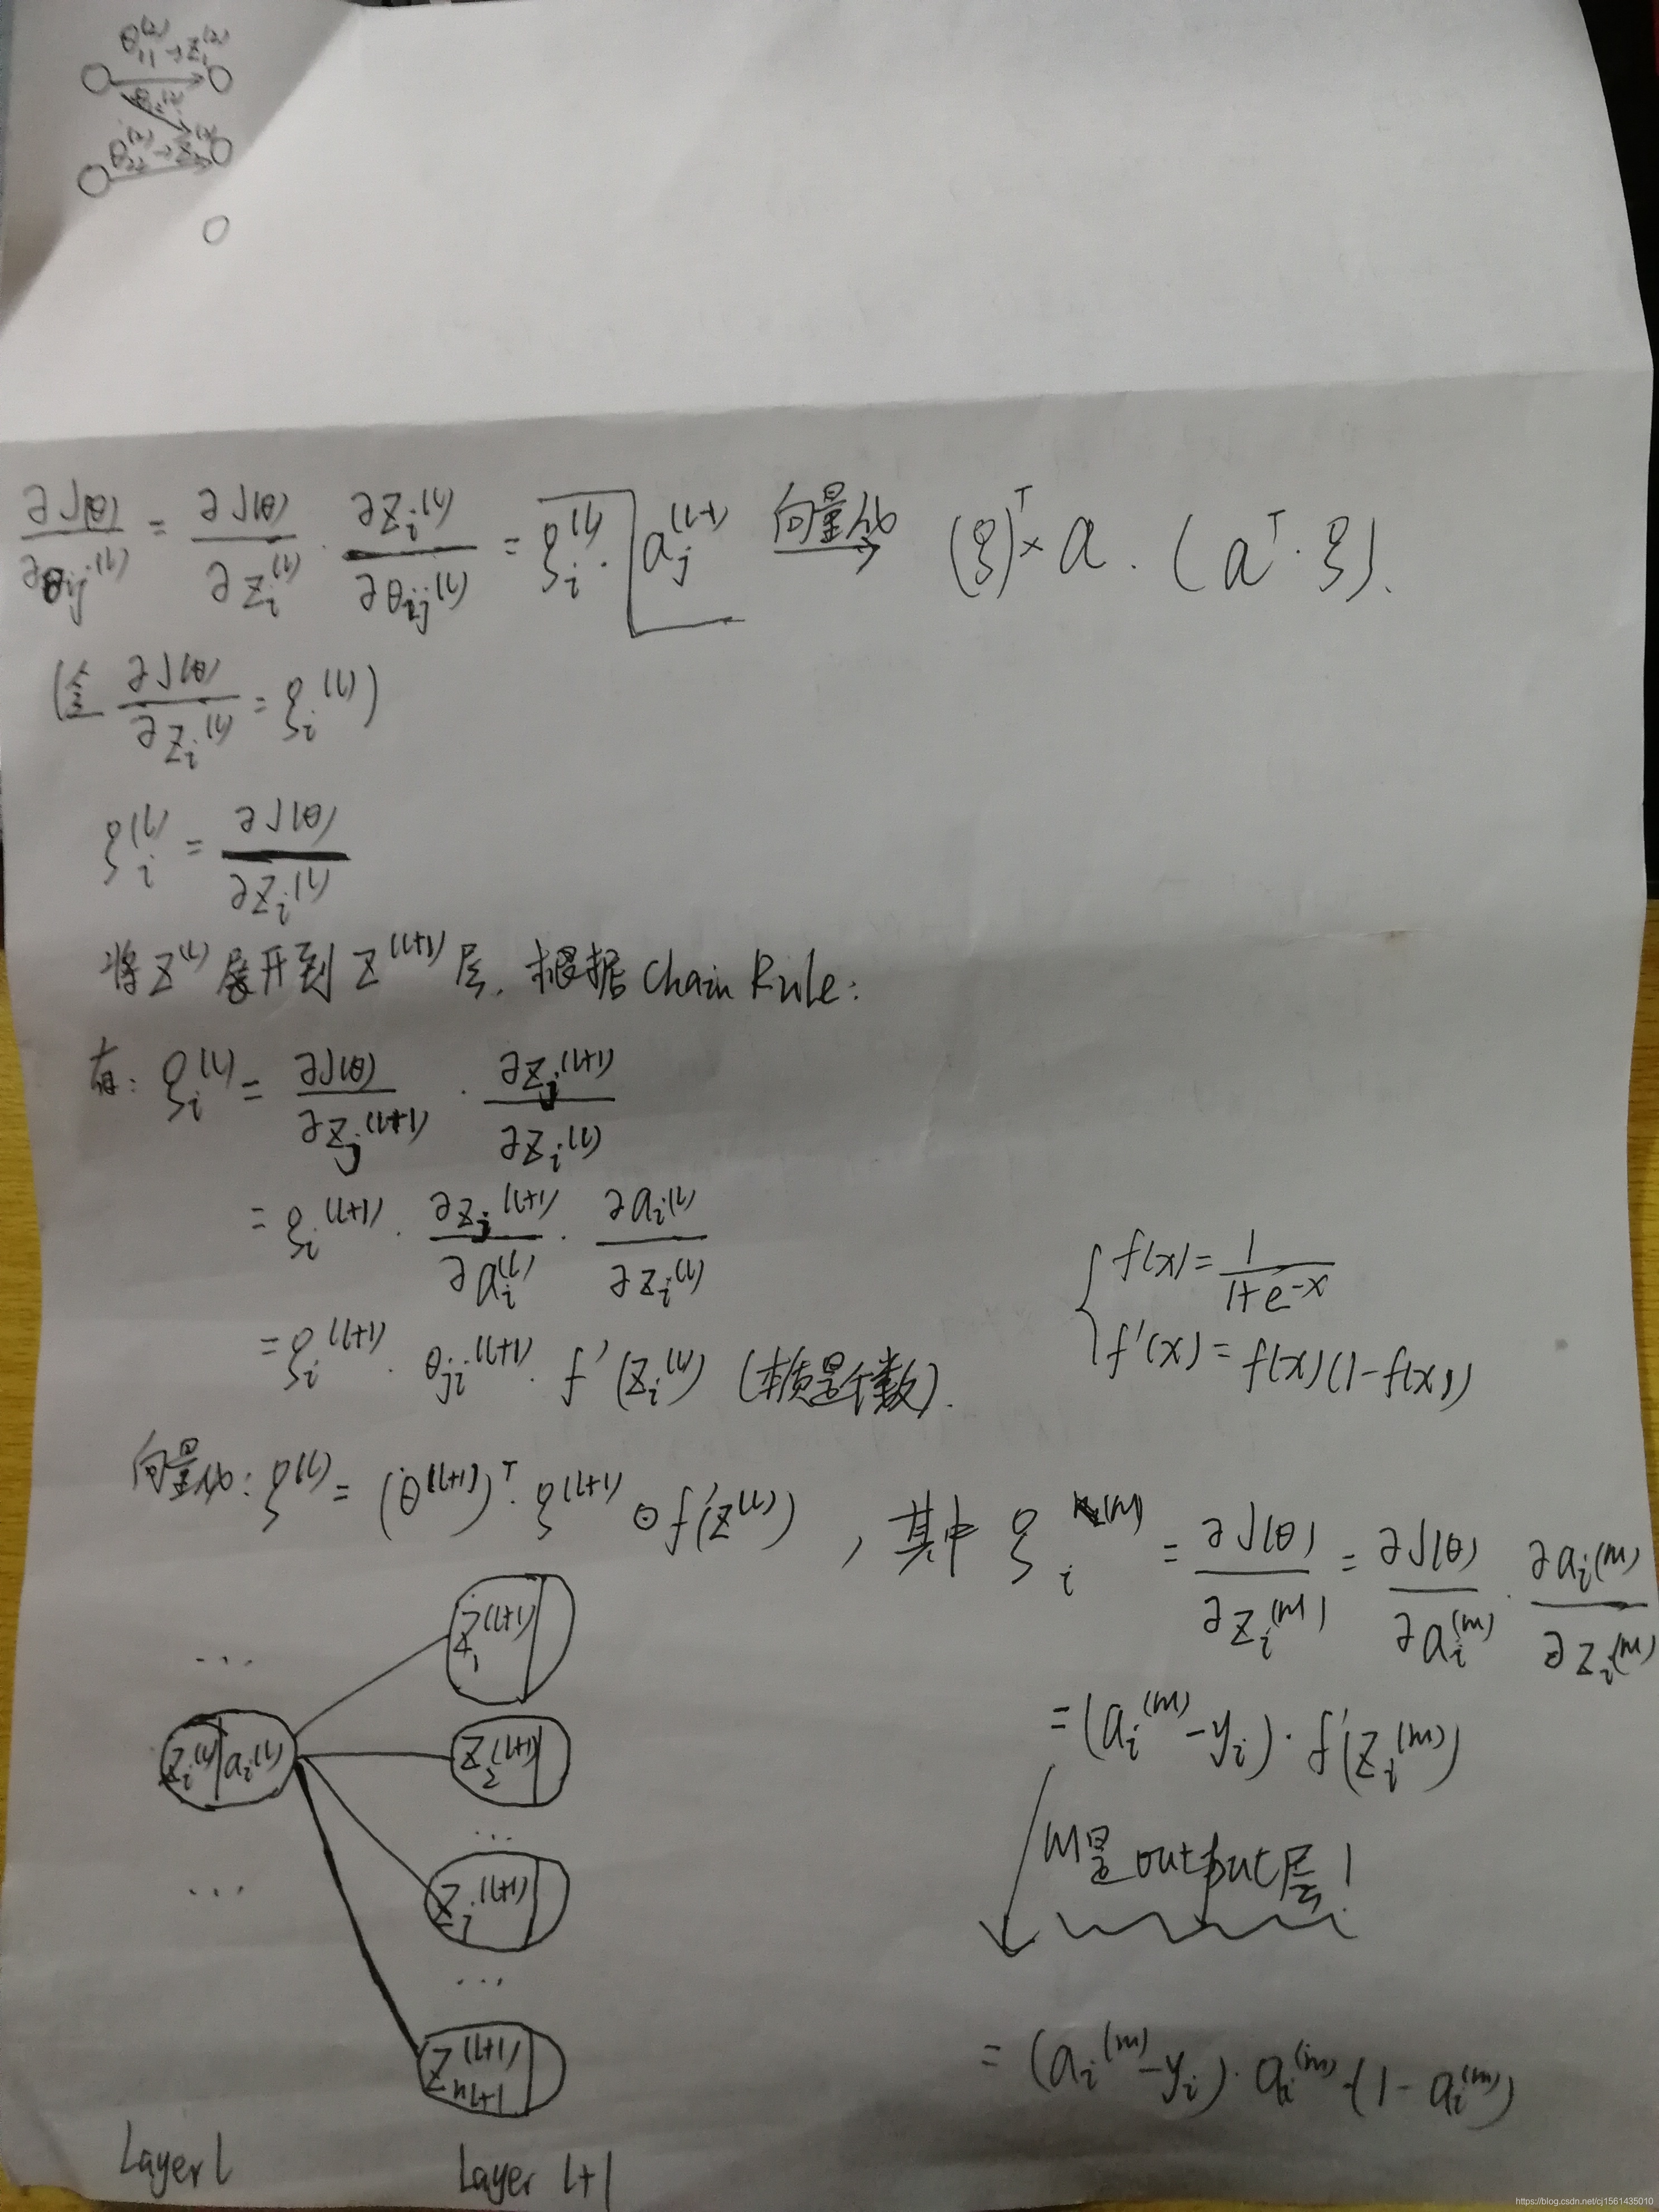 θ₁₁⁽²⁾→z₁⁽²⁾
θ₂₂⁽²⁾→z₂⁽²⁾
∂J(θ)/∂θij⁽ˡ⁾ = ∂J(θ)/∂zi⁽ˡ⁾ · ∂zi⁽ˡ⁾/∂θij⁽ˡ⁾ = ξi⁽ˡ⁾ · aj⁽ˡ⁻¹⁾ 向量化→ (ξ)ᵀ × a . (aᵀ · ξ).
(令 ∂J(θ)/∂zi⁽ˡ⁾ = ξi⁽ˡ⁾)
ξi⁽ˡ⁾ = ∂J(θ)/∂zi⁽ˡ⁾
将z⁽ˡ⁾展开到z⁽ˡ⁺¹⁾层. 根据Chain Rule:
有: ξi⁽ˡ⁾ = ∂J(θ)/∂zj⁽ˡ⁺¹⁾ · ∂zj⁽ˡ⁺¹⁾/∂zi⁽ˡ⁾
= ξi⁽ˡ⁺¹⁾ · ∂zj⁽ˡ⁺¹⁾/∂ai⁽ˡ⁾ · ∂ai⁽ˡ⁾/∂zi⁽ˡ⁾
= ξi⁽ˡ⁺¹⁾ · θji⁽ˡ⁺¹⁾ · f'(zi⁽ˡ⁾) (本质是个数).
f(x) = 1/(1+e^-x)
f'(x) = f(x)(1-f(x))
向量化: ξ⁽ˡ⁾ = (θ⁽ˡ⁺¹⁾)ᵀ · ξ⁽ˡ⁺¹⁾ ⊙ f'(z⁽ˡ⁾) , 其中 ξi⁽ᵐ⁾ = ∂J(θ)/∂zi⁽ᵐ⁾ = ∂J(θ)/∂ai⁽ᵐ⁾ · ∂ai⁽ᵐ⁾/∂zi⁽ᵐ⁾
= (ai⁽ᵐ⁾ - yi) · f'(zi⁽ᵐ⁾)
m是output层!
= (ai⁽ᵐ⁾ - yi) · ai⁽ᵐ⁾ · (1 - ai⁽ᵐ⁾)
...
z₁⁽ˡ⁺¹⁾
zi⁽ˡ⁾ | ai⁽ˡ⁾
z₂⁽ˡ⁺¹⁾
...
...
zj⁽ˡ⁺¹⁾
...
z_{n l+1}⁽ˡ⁺¹⁾
Layer l
Layer l+1
https://blog.csdn.net/cj1561435010